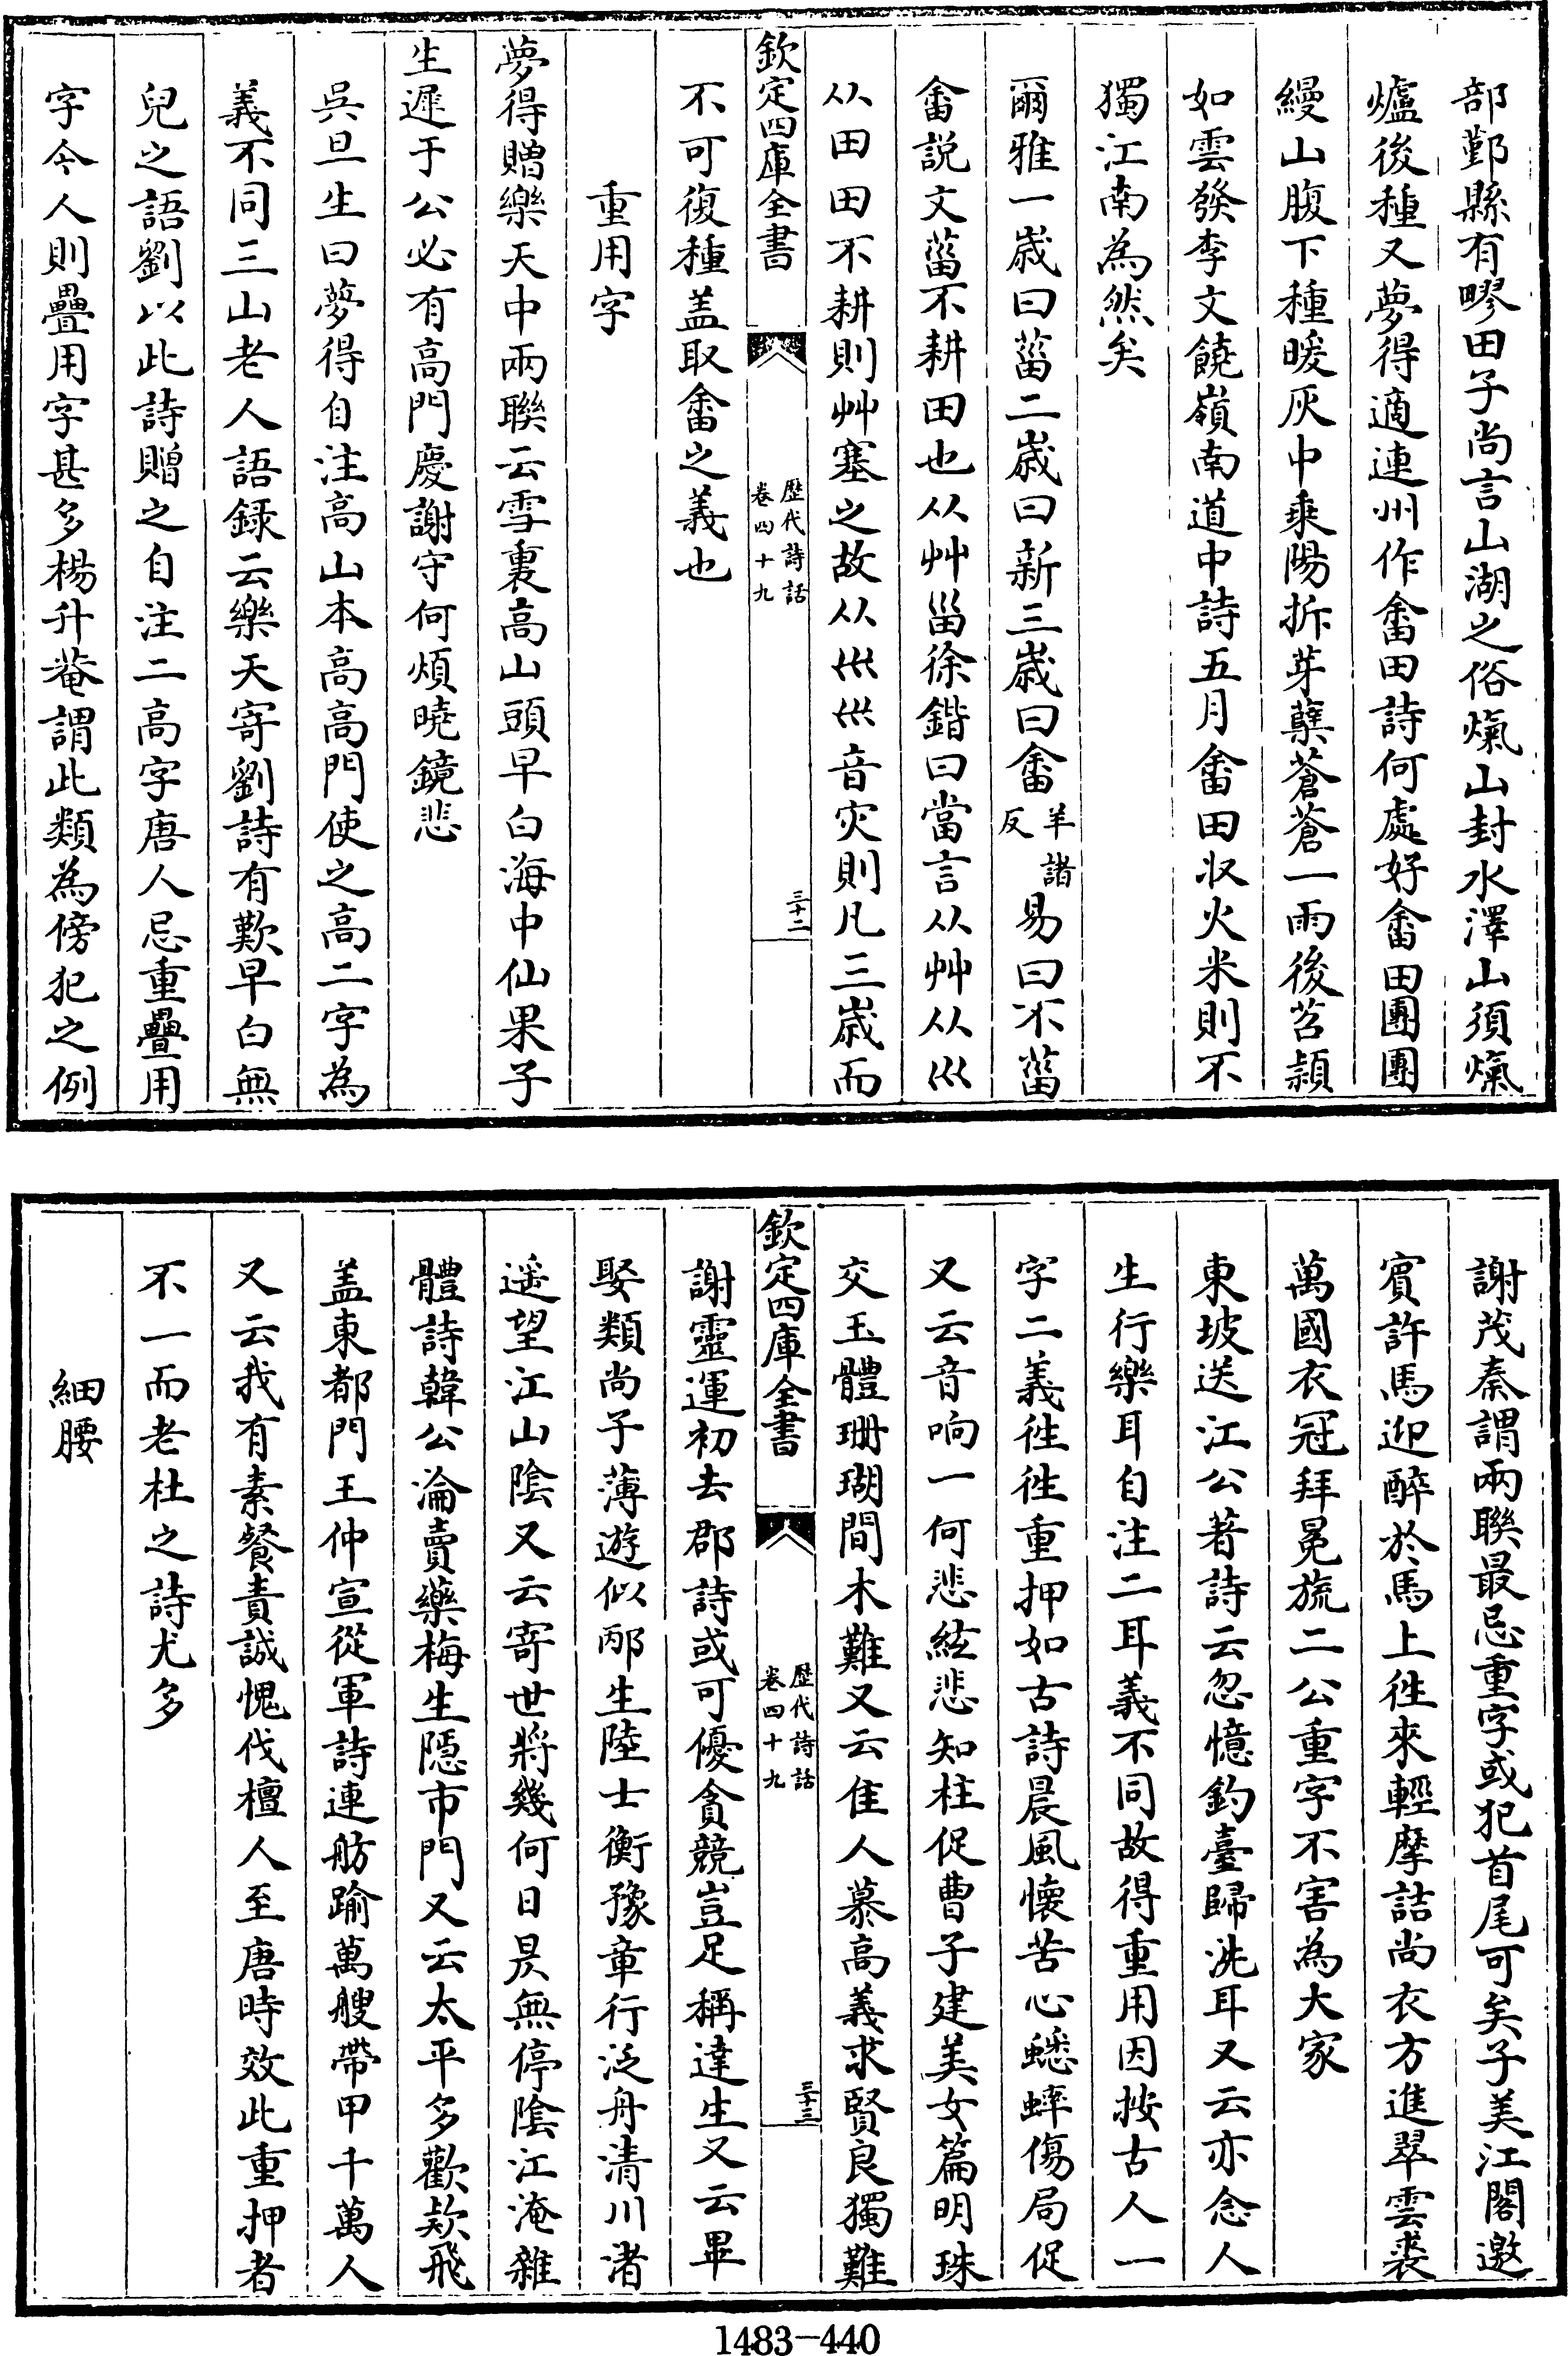 部鄞縣有疁田子尚言山湖之俗㷀山封水澤山須㷀
爐後種又夢得適連州作畬田詩何處好畬田團團
縵山腹下種暖灰中乘陽拆芽蘖蒼蒼一雨後苕穎
如雲發李文饒嶺南道中詩五月畬田收火米則不
獨江南為然矣
爾雅一歲曰菑二歲曰新三歲曰畬羊諸反易曰不菑
畬説文菑不耕田也从艸甾徐鍇曰當言从艸从巛
从田田不耕則艸塞之故从𡿧𡿧音灾則凡三歲而
欽定四庫全書
歷代詩話
卷四十九
三十二
不可復種盖取畬之義也
重用字
夢得贈樂天中兩聯云雪裏高山頭早白海中仙果子
生遲于公必有高門慶謝守何煩曉鏡悲
吳旦生曰夢得自注高山本高高門使之高二字為
義不同三山老人語録云樂天寄劉詩有歎早白無
兒之語劉以此詩贈之自注二高字唐人忌重疊用
字今人則疊用字甚多楊升菴謂此類為傍犯之例
謝茂秦謂兩聯最忌重字或犯首尾可矣子美江閣邀
賓許馬迎醉於馬上徃來輕摩詰尚衣方進翠雲裘
萬國衣冠拜冕旒二公重字不害為大家
東坡送江公著詩云忽憶釣臺歸洗耳又云亦念人
生行樂耳自注二耳義不同故得重用因按古人一
字二義徃徃重押如古詩晨風懷苦心蟋蟀傷局促
又云音响一何悲絃悲知柱促曹子建美女篇明珠
交玉體珊瑚間木難又云佳人慕高義求賢良獨難
欽定四庫全書
歷代詩話
卷四十九
三十三
謝靈運初去郡詩或可優貪競豈足稱達生又云畢
娶類尚子薄遊似邴生陸士衡豫章行泛舟清川渚
遥望江山陰又云寄世將幾何日昃無停陰江淹雜
體詩韓公淪賣藥梅生隱市門又云太平多歡娱飛
盖東都門王仲宣從軍詩連舫踰萬艘帶甲千萬人
又云我有素餐責誠愧伐檀人至唐時效此重押者
不一而老杜之詩尤多
細腰
1483-440